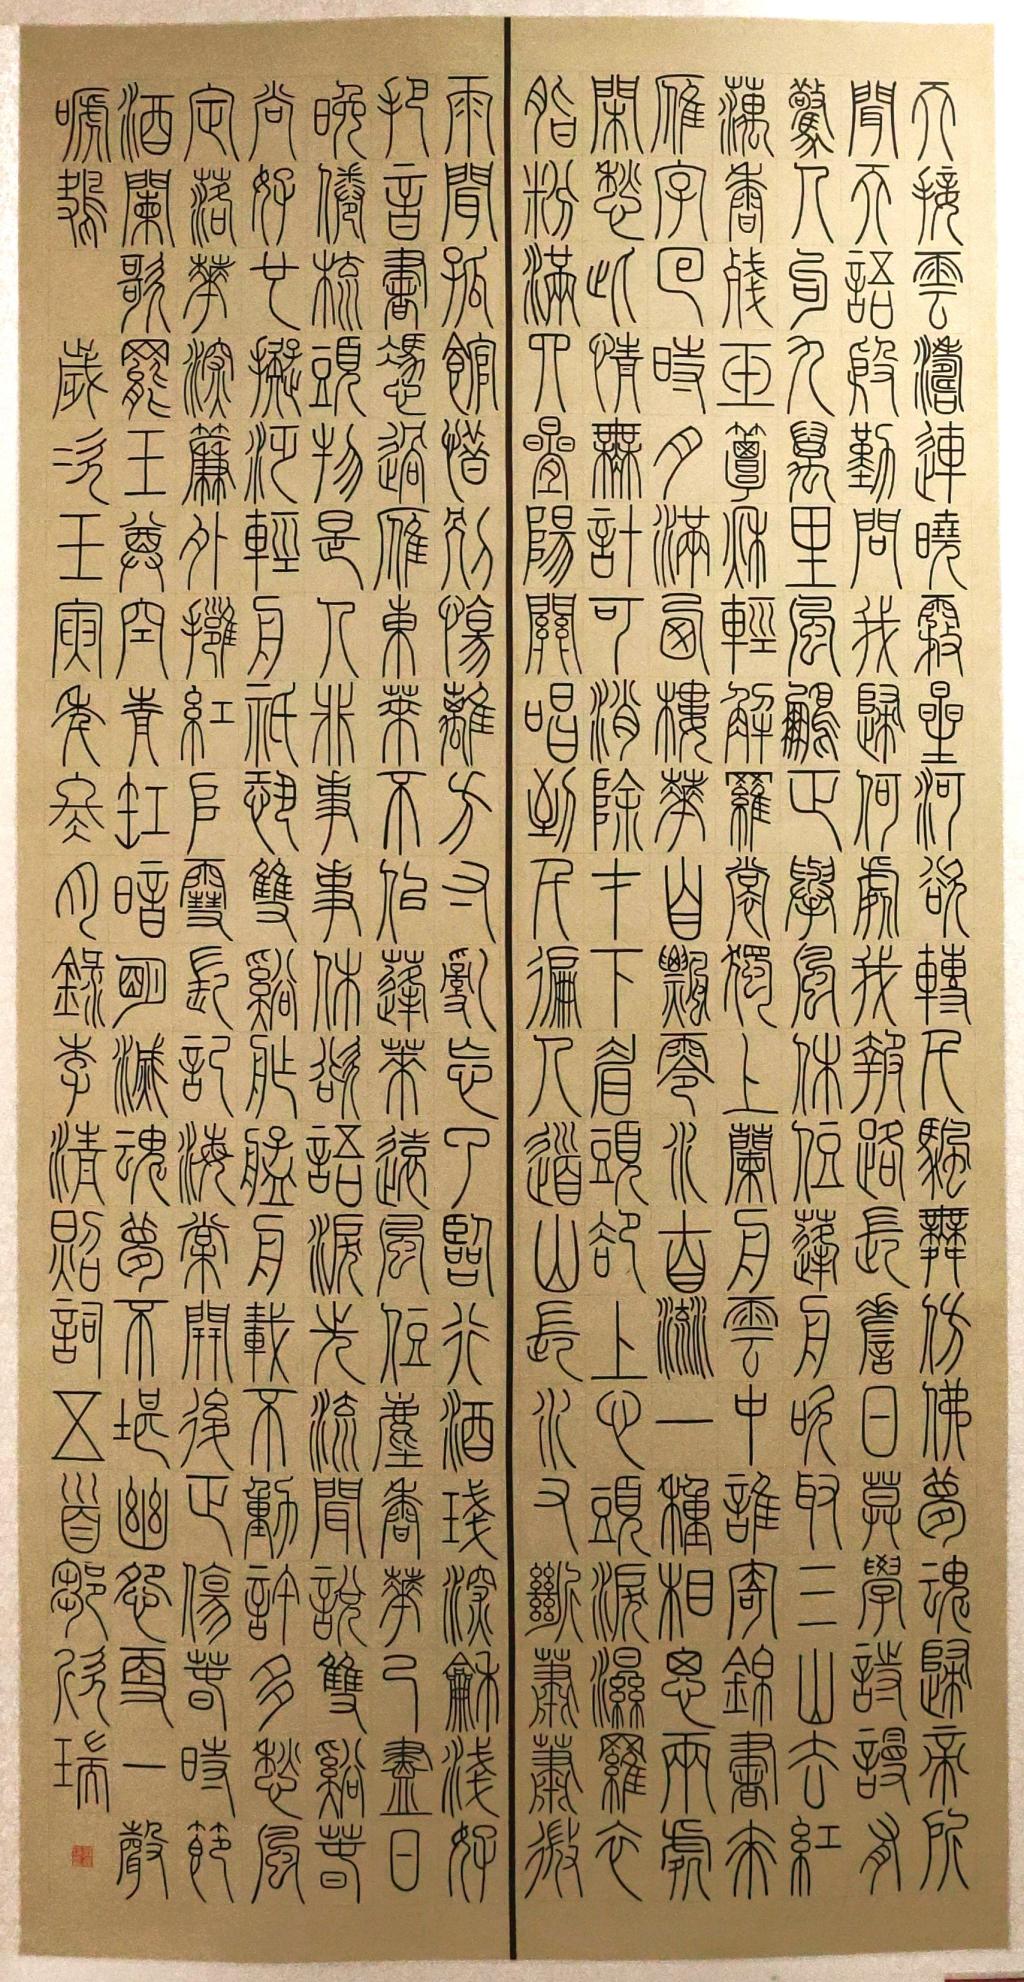 天接雲濤連曉霧星河欲轉千帆舞仿佛夢魂歸帝所
聞天語殷勤問我歸何處我報路長嗟日莫學詩謾有
驚人句九萬里風鵬正舉風休住蓬舟吹取三山去紅
藕香殘玉簟秋輕解羅裳獨上蘭舟雲中誰寄錦書來
雁字回時月滿西樓花自飄零水自流一種相思兩處
閑愁此情無計可消除才下眉頭卻上心頭淚濕羅衣
脂粉滿四疊陽關唱到千遍人道山長水又斷蕭蕭微
雨聞孤館惜別傷離方寸亂忘了臨行酒琖深和淺好
把音書憑過雁東萊不似蓬萊遠風住塵香花已盡日
晚倦梳頭物是人非事事休欲語淚先流聞說雙谿春
尚好也擬泛輕舟只恐雙谿舴艋舟載不動許多愁風
定落花深簾外擁紅堆雪長記海棠開後正傷春時節
酒闌歌罷玉尊空青缸暗明滅魂夢不堪幽怨更一聲
啼鴂 歲次壬寅年冬月錄李清照詞五首鄒欣瑞